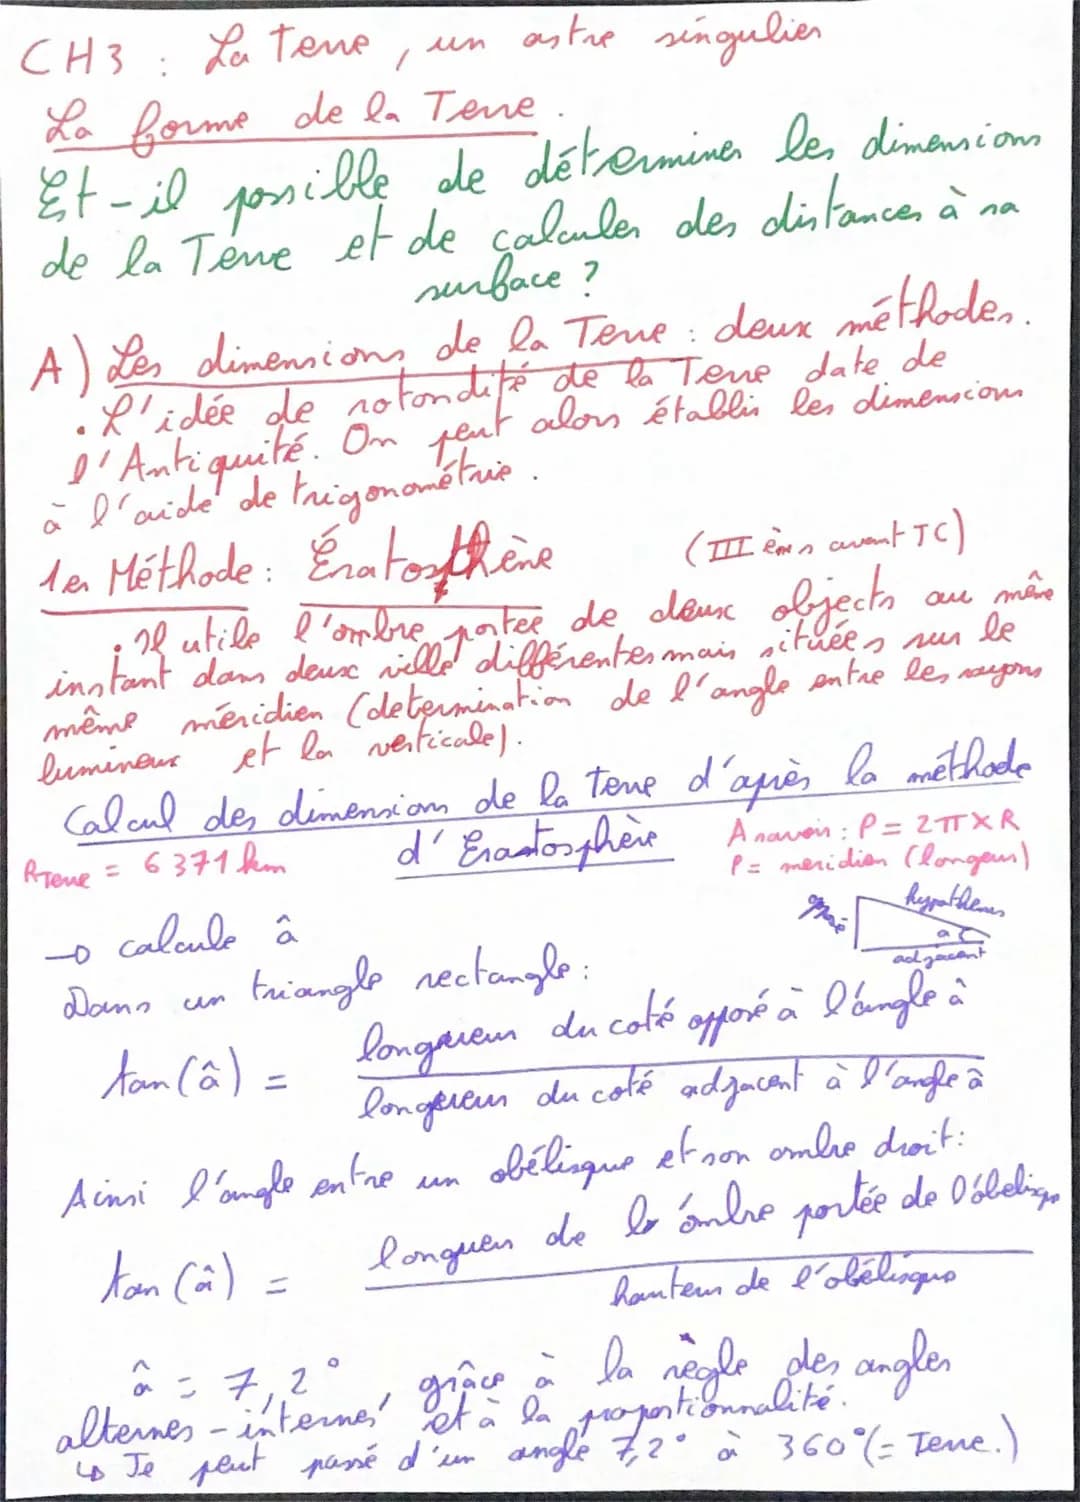 CH3 : La Terre, un astre singulier
La forme de la Terre.
Est-il possible de déterminer les dimensions
de la Terre et de calculer des distances à sa
surface ?
A) Les dimensions de la Terre : deux méthodes.
. L'idée de rotondité de la Terre date de
l'Antiquité. On peut alors établir les dimensions
à l'aide de trigonométrie.
1er Méthode : Ératosthène (III èms avant JC)
. Il utile l'ombre portée de deux objects au même
instant dans deux ville différentes mais situées sur le
même méridien (determination de l'angle entre les rayons
lumineux et la verticale).
Calcul des dimensions de la Terre d'après la méthode
d'Erastosphère
A savoir : P = 2π×R
RTerre = 6371 km
P = meridien (longeur)
→ calcule â
hypothénus
a
adjacent
Dans un triangle rectangle :
tan(â) = longueur du coté opposé à l'angle â
longueur du coté adjacent à l'angle â
Ainsi l'angle entre un obélisque et son ombre droit :
tan(â) = longueur de l'ombre portée de l'óbelisque
hauteur de l'obélisque
â = 7,2°, grâce à la règle des angles
alternes-internes et à la proportionnalité.
↳ Je peut passé d'un angle 7,2° à 360° (= Terre.)